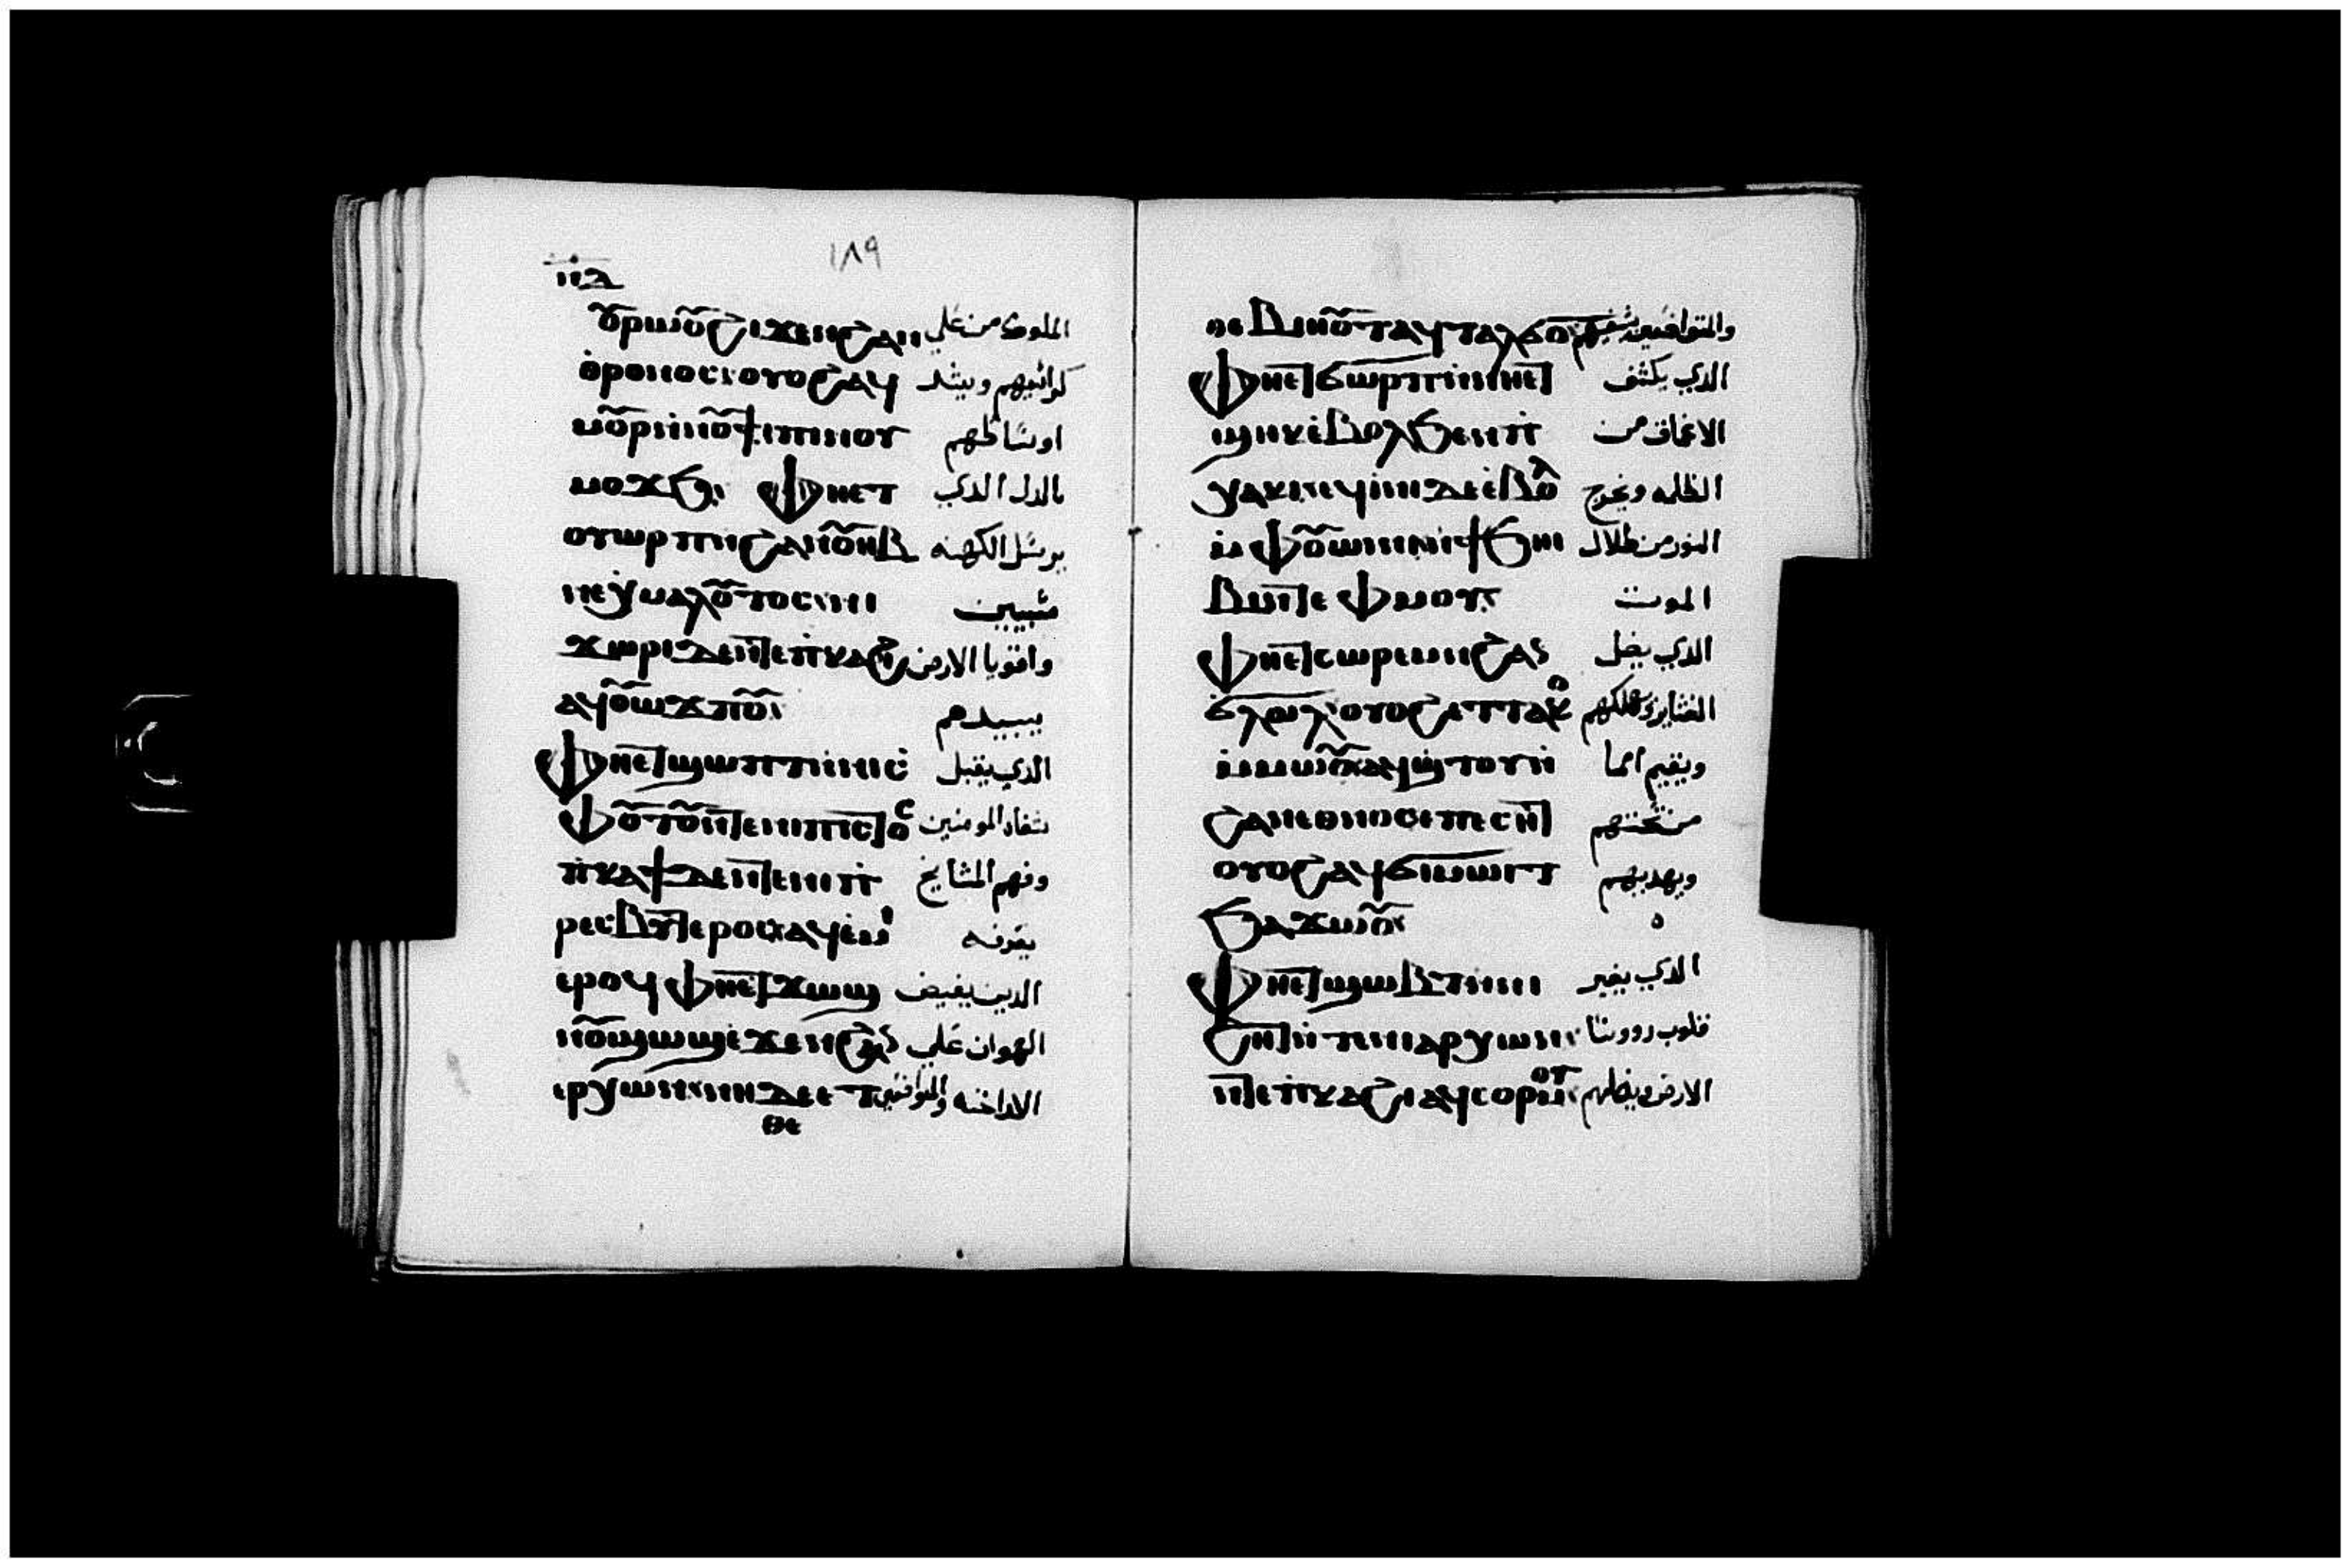 ١٨٩
ⲟⲩⲣⲱⲟⲩ ϩⲓϫⲉⲛ ϩⲁⲛ الملوك من علي
ⲑⲣⲟⲛⲟⲥ: ⲟⲩⲟϩ ⲁϥ كراسيهم ويشد
ⲙⲟⲩⲣ ⲛⲛⲟⲩϯⲡⲓ ⲛⲛⲟⲩ اوساطهم
ⲙⲟϫϧ: ⲫⲏⲉⲧ بالدل الدي
ⲟⲩⲱⲣⲡ ⲛϩⲁⲛⲟⲩⲏⲃ يرسل الكهنه
ⲛⲉⲭⲙⲁⲗⲟⲩⲧⲟⲥ: ⲛⲓ سبيين
ϫⲱⲣⲓ ⲇⲉ ⲛⲧⲉ ⲡⲕⲁϩⲓ واقويا الارض
ⲁϥⲟⲩⲱϫⲡⲟⲩ: يبيدهم
ⲫⲏⲉⲧϣⲱⲡⲧ ⲛⲛⲓⲥ الدي يقبل
ⲫⲟⲩⲧⲟⲩ ⲛⲧⲉ ⲛⲓⲡⲓⲥⲧⲟⲥ شفاه المومنين
ⲡⲕⲁϯ ⲇⲉ ⲛⲧⲉ ⲛⲓⲡ وفهم المشايخ
ⲣⲉⲥⲃⲩⲧⲉⲣⲟⲥ ⲁϥⲉⲙⲓ يعرفه
ⲉⲣⲟϥ ⲫⲏⲉⲧϫⲱϣ الدين يفيض
ⲛⲟⲩϣⲱϣ ⲉϫⲉⲛ ϩⲁⲛ الهوان علي
ⲉⲣⲭⲱⲛ: ⲛⲏ ⲇⲉ ⲉⲧ الاراخنه والمتواضعين
ⲑⲉ
ⲑⲉⲃⲓⲏⲟⲩⲧ ⲁϥⲧⲁⲗϭⲱⲟⲩ والمتواضعين يشفيهم
ⲫⲏⲉⲧϭⲱⲣⲡ ⲛⲛⲏⲉⲧ الدي يكشف
ϣⲏⲕ ⲉⲃⲟⲗϧⲉⲛ ⲡ الاعماق من
ⲭⲁⲕⲓ: ⲉϥⲓⲛⲓ ⲇⲉ ⲉⲃⲟⲗ الظلمه ويخرج
ⲙⲫⲟⲩⲱⲓⲛⲓ ϧⲉⲛ ⲧϧⲏⲓ النور من ظلال
ⲃⲓ ⲛⲧⲉ ⲫⲙⲟⲩ: الموت
ⲫⲏⲉⲧⲥⲱⲣⲉⲙ ⲛϩⲁⲛ الدي يضل
ϭⲗⲱⲗ: ⲟⲩⲟϩ ⲉⲧⲧⲁⲕⲟ العشاير ويهلكهم
ⲙⲙⲱⲟⲩ: ⲁϥϣⲧⲟⲩ ⲛ ويقيم امما
ϩⲁⲛⲉⲑⲛⲟⲥ ⲉⲡⲉⲥⲏⲧ من تحتهم
ⲟⲩⲟϩ ⲁϥϭⲓⲙⲱⲓⲧ ويهديهم
ϧⲁϫⲱⲟⲩ:
ⲫⲏⲉⲧϣⲱⲃⲧ ⲛⲛⲓ الدي يغير
ϩⲏⲧ ⲛⲧⲉ ⲛⲓⲁⲣⲭⲱⲛ: قلوب رووسا
ⲛⲧⲉ ⲡⲕⲁϩⲓ ⲁϥⲥⲟⲣⲙⲟⲩ: الارض ويضلهم